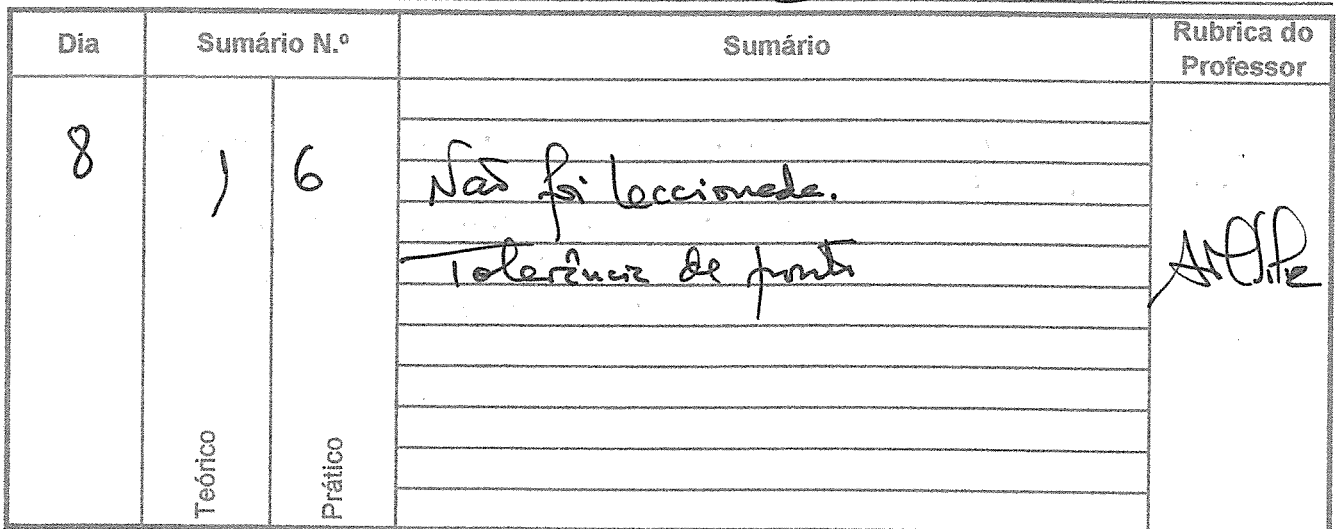 Dia Sumário N.º Sumário Rubrica do Professor
8 ) 6 Não foi leccionada.
Tolerância de ponto
Teórico Prático